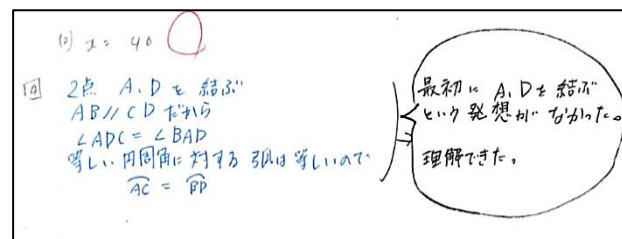 (2) x = 40
4 2点 A、Dを結ぶ
AB//CDだから
∠ADC = ∠BAD
等しい円周角に対する弧は等しいので
⌒AC = ⌒BD
最初に A、Dを結ぶ
という発想がなかった。
理解できた。